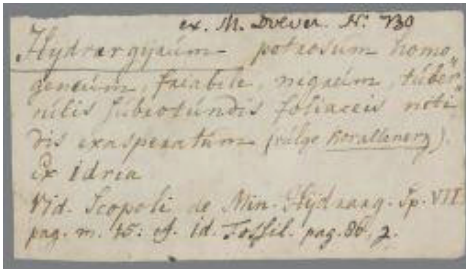 ex. M. Drever. N: 730
Hydrargyrum petrosum homo„
geneum, friabile, nigrum, tuber„
culis subrotundis foliaceis niti„
dis exasperatum (vulgo Korallenerz).
Ex Idria
Vid. Scopoli de Min. Hydrarg. Sp. VII.
pag. m. 15. cf. id. Fossil. pag. 86, 2.